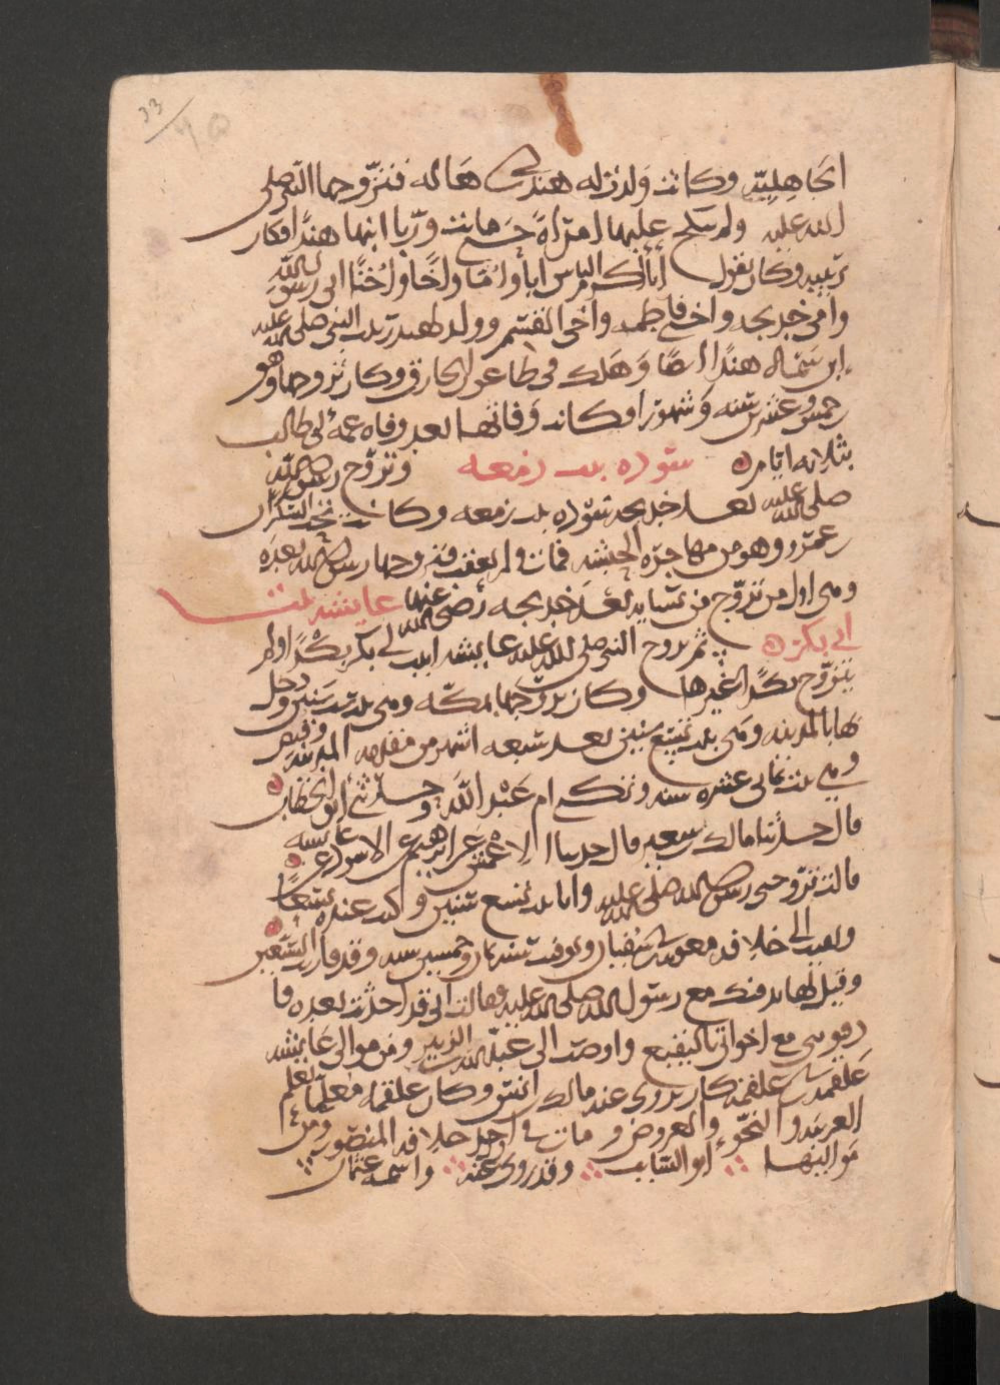 33
الجاهلية وكانت ولدت له هند بن ابي هاله فتزوجها النبي صلى
الله عليه ولم ينكح عليها امراة حتى ماتت وربا ابنها هندا فكان
ربيبه وكان يقول انا اكرم الناس ابا واما واخا واختا ابي رسول الله
وامي خديجه واختي فاطمه واخي القسم وولد لهند ربيب النبي صلى الله عليه
ابن سماه هندا ايضا وهلك في طاعون الجارف وكان تزوجها وهو
خمس وعشرين سنه وشهورا وكانت وفاتها بعد وفاه عمه ابي طالب
بثلاثه ايام سوده بنت زمعه وتزوج رسول الله
صلى الله عليه بعد خديجه سوده بنت زمعه وكانت تحت السكران
بن عمرو وهو من مهاجره الحبشه فمات ولم يعقب فتزوجها رسول الله بعده
وهي اول من تزوج من نسايه بعد خديجه رضي الله عنها عايشه بنت
ابي بكر ثم تزوج النبي صلى الله عليه عايشه ابنت ابي بكر بكرا ولم
يتزوج بكرا غيرها وكان تزوجها بمكه وهي بنت ست سنين ودخل
بها بالمدينه وهي بنت تسع سنين بعد سبعه اشهر من مقدمه المدينه وقبض
وهي بنت ثماني عشره سنه وتكنى ام عبد الله وحدثني ابو الخطاب
قال حدثنا مالك بن سعير قال حدثنا الاعمش عن ابرهيم عن الاسود عن عايشه
قالت تزوجني رسول الله صلى الله عليه وانا بنت تسع سنين وكنت عنده تسعا
وبقيت الى خلافه معويه بن ابي سفيان وتوفيت سنه ثمان وخمسين سنه وقد قاربت السبعين
وقيل لها ندفنك مع رسول الله صلى الله عليه فقالت اني قد احدثت بعده فا
دفنوني مع اخواتي بالبقيع واوصت الى عبد الله بن الزبير ومن موالي عايشه
علقمه بن ابي علقمه كان يروي عنه مالك بن انس وكان علقمه معلما يعلم
العربيه والنحو والعروض ومات في اول خلافه المنصور ومن
مواليها ابو السايب وقد روى عنه واسمه عثمان